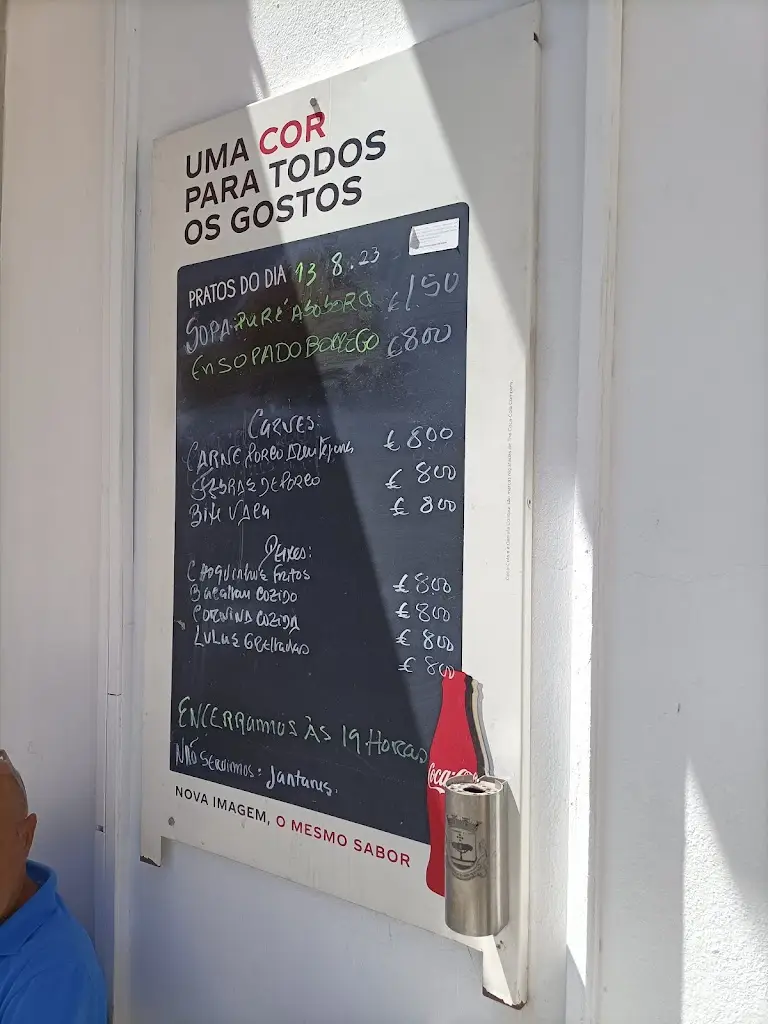 UMA COR
PARA TODOS
OS GOSTOS
PRATOS DO DIA 13 8.23
SOPA PURÉ ABOBORA €150
ENSOPADO BORREGO €800
CARNES:
CARNE PORCO €800
DE PORCO €800
BIFE VACA €800
PEIXES:
CHOQUINHOS FRITOS €800
BACALHAU COZIDO €800
CORVINA COZIDA €800
LULAS GRELHADAS €800
ENCERRAMOS ÀS 19 HORAS
NÃO SERVIMOS: JANTARES.
Coca-Cola
NOVA IMAGEM, O MESMO SABOR